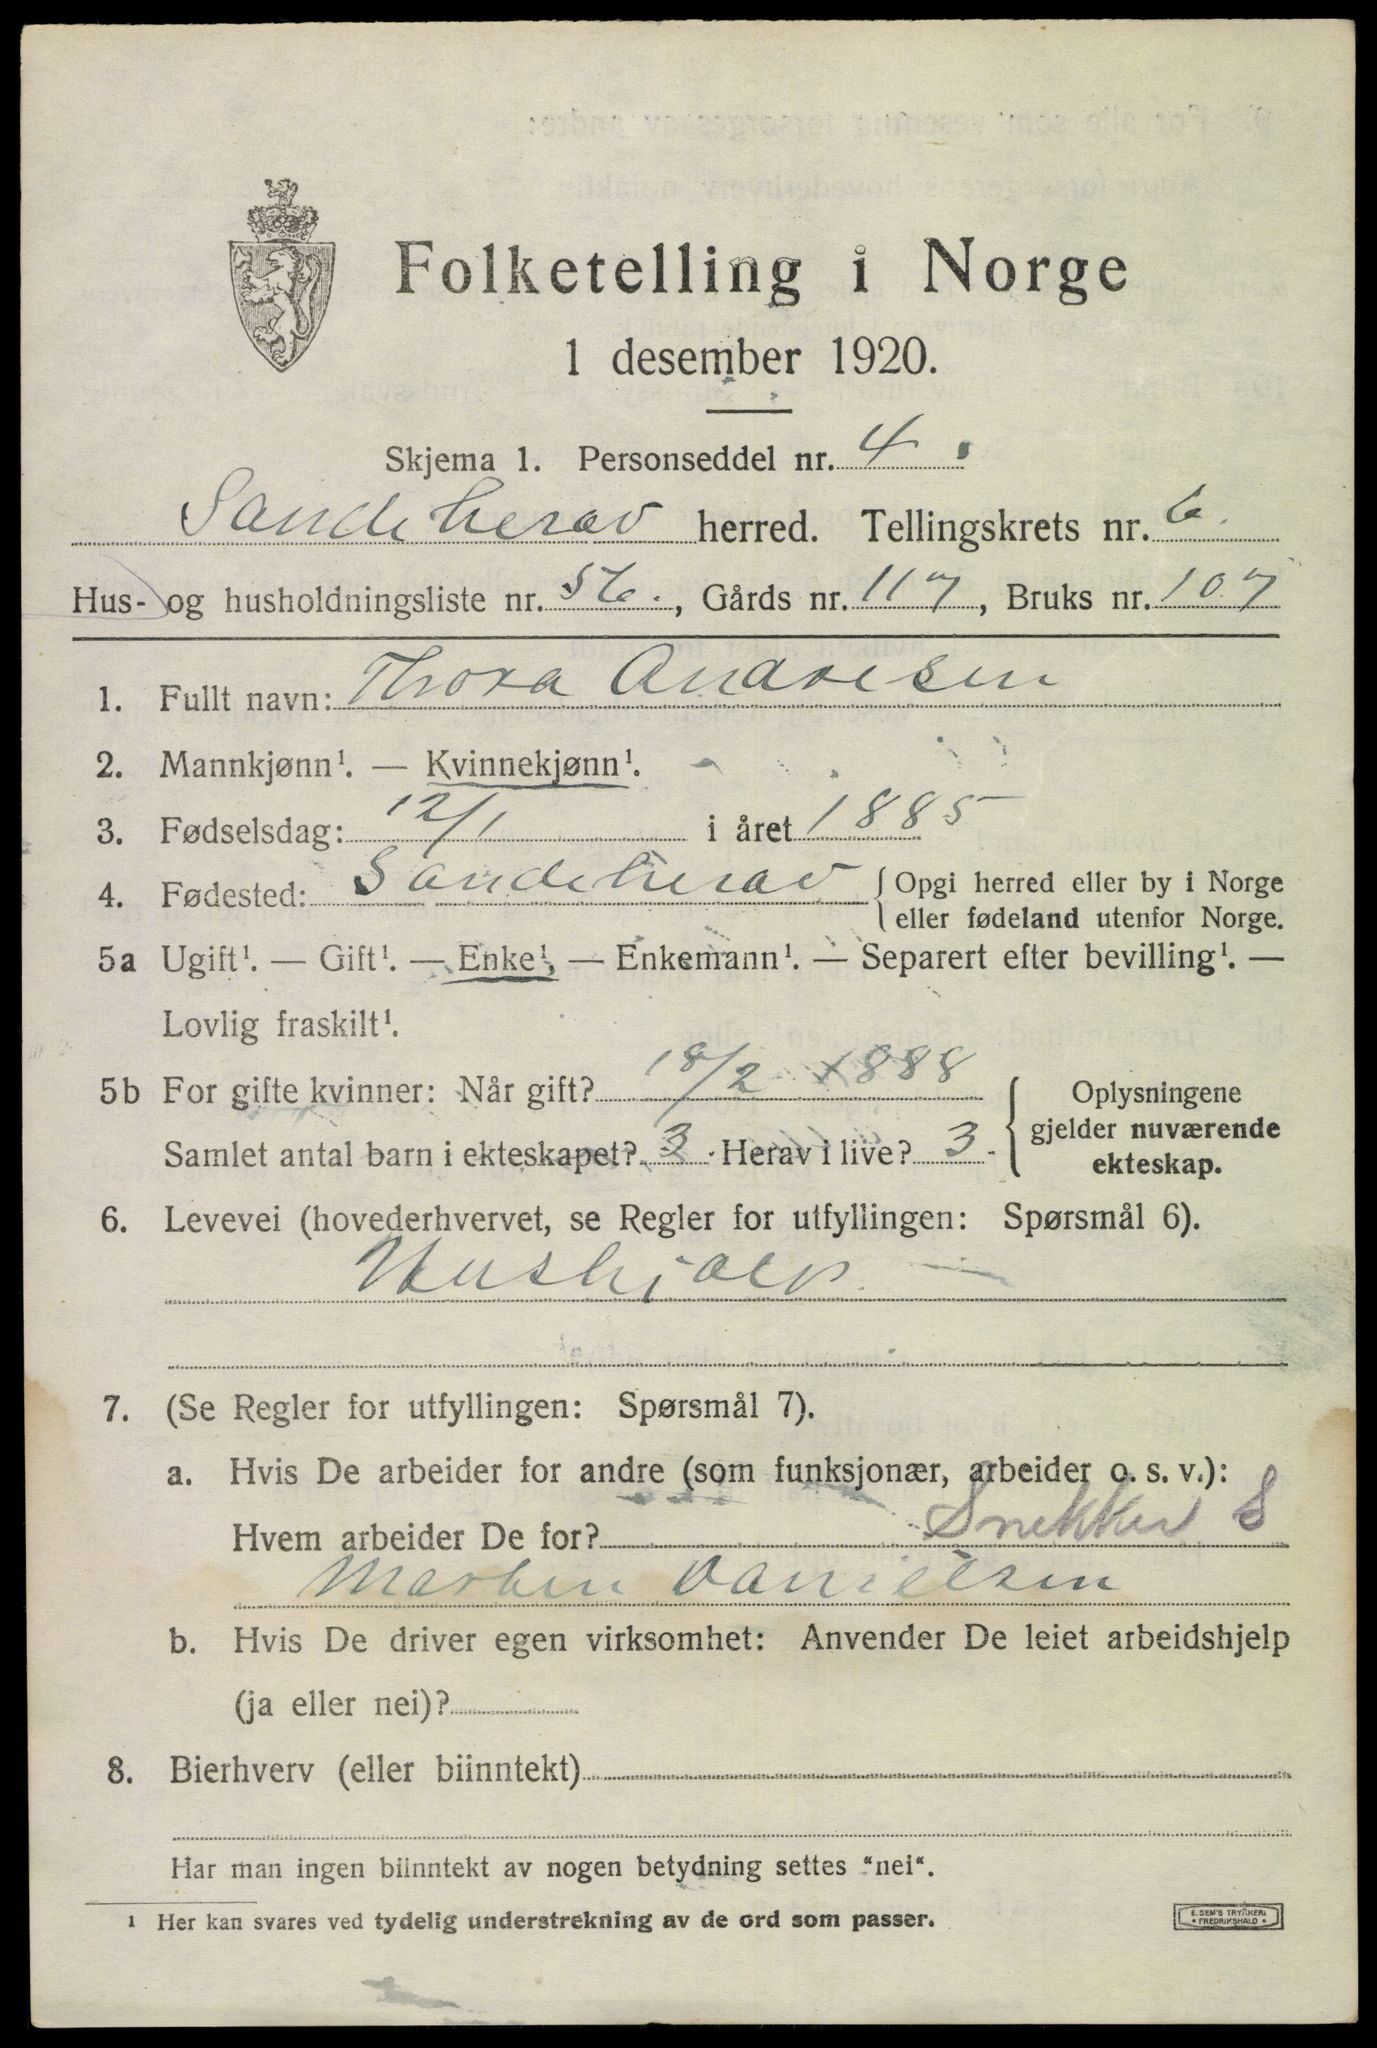 Folketelling i Norge
1 desember 1920.
Skjema 1. Personseddel nr. 4
Sandeherav herred. Tellingskrets nr. 6.
Hus- og husholdningsliste nr. 56., Gårds nr. 117, Bruks nr. 107
1. Fullt navn: Thora Andresen
2. Mannkjønn¹. — Kvinnekjønn¹.
3. Fødselsdag: 12/1 i året 1885
4. Fødested: Sandeherav {Opgi herred eller by i Norge
eller fødeland utenfor Norge.
5a Ugift¹. — Gift¹. — Enke¹, — Enkemann¹. — Separert efter bevilling¹. —
Lovlig fraskilt¹.
5b For gifte kvinner: Når gift? 18/2 1888 { Oplysningene
Samlet antal barn i ekteskapet? 3. Herav i live? 3. gjelder nuværende
ekteskap.
6. Levevei (hovederhvervet, se Regler for utfyllingen: Spørsmål 6).
Hushjælp. —
7. (Se Regler for utfyllingen: Spørsmål 7).
a. Hvis De arbeider for andre (som funksjonær, arbeider o. s. v.):
Hvem arbeider De for? Snekker S
Marten Danielsen
b. Hvis De driver egen virksomhet: Anvender De leiet arbeidshjelp
(ja eller nei)?
8. Bierhverv (eller biinntekt)
Har man ingen biinntekt av nogen betydning settes "nei".
1 Her kan svares ved tydelig understrekning av de ord som passer.
E. SEM'S TRYKKERI
* FREDRIKSHALD *